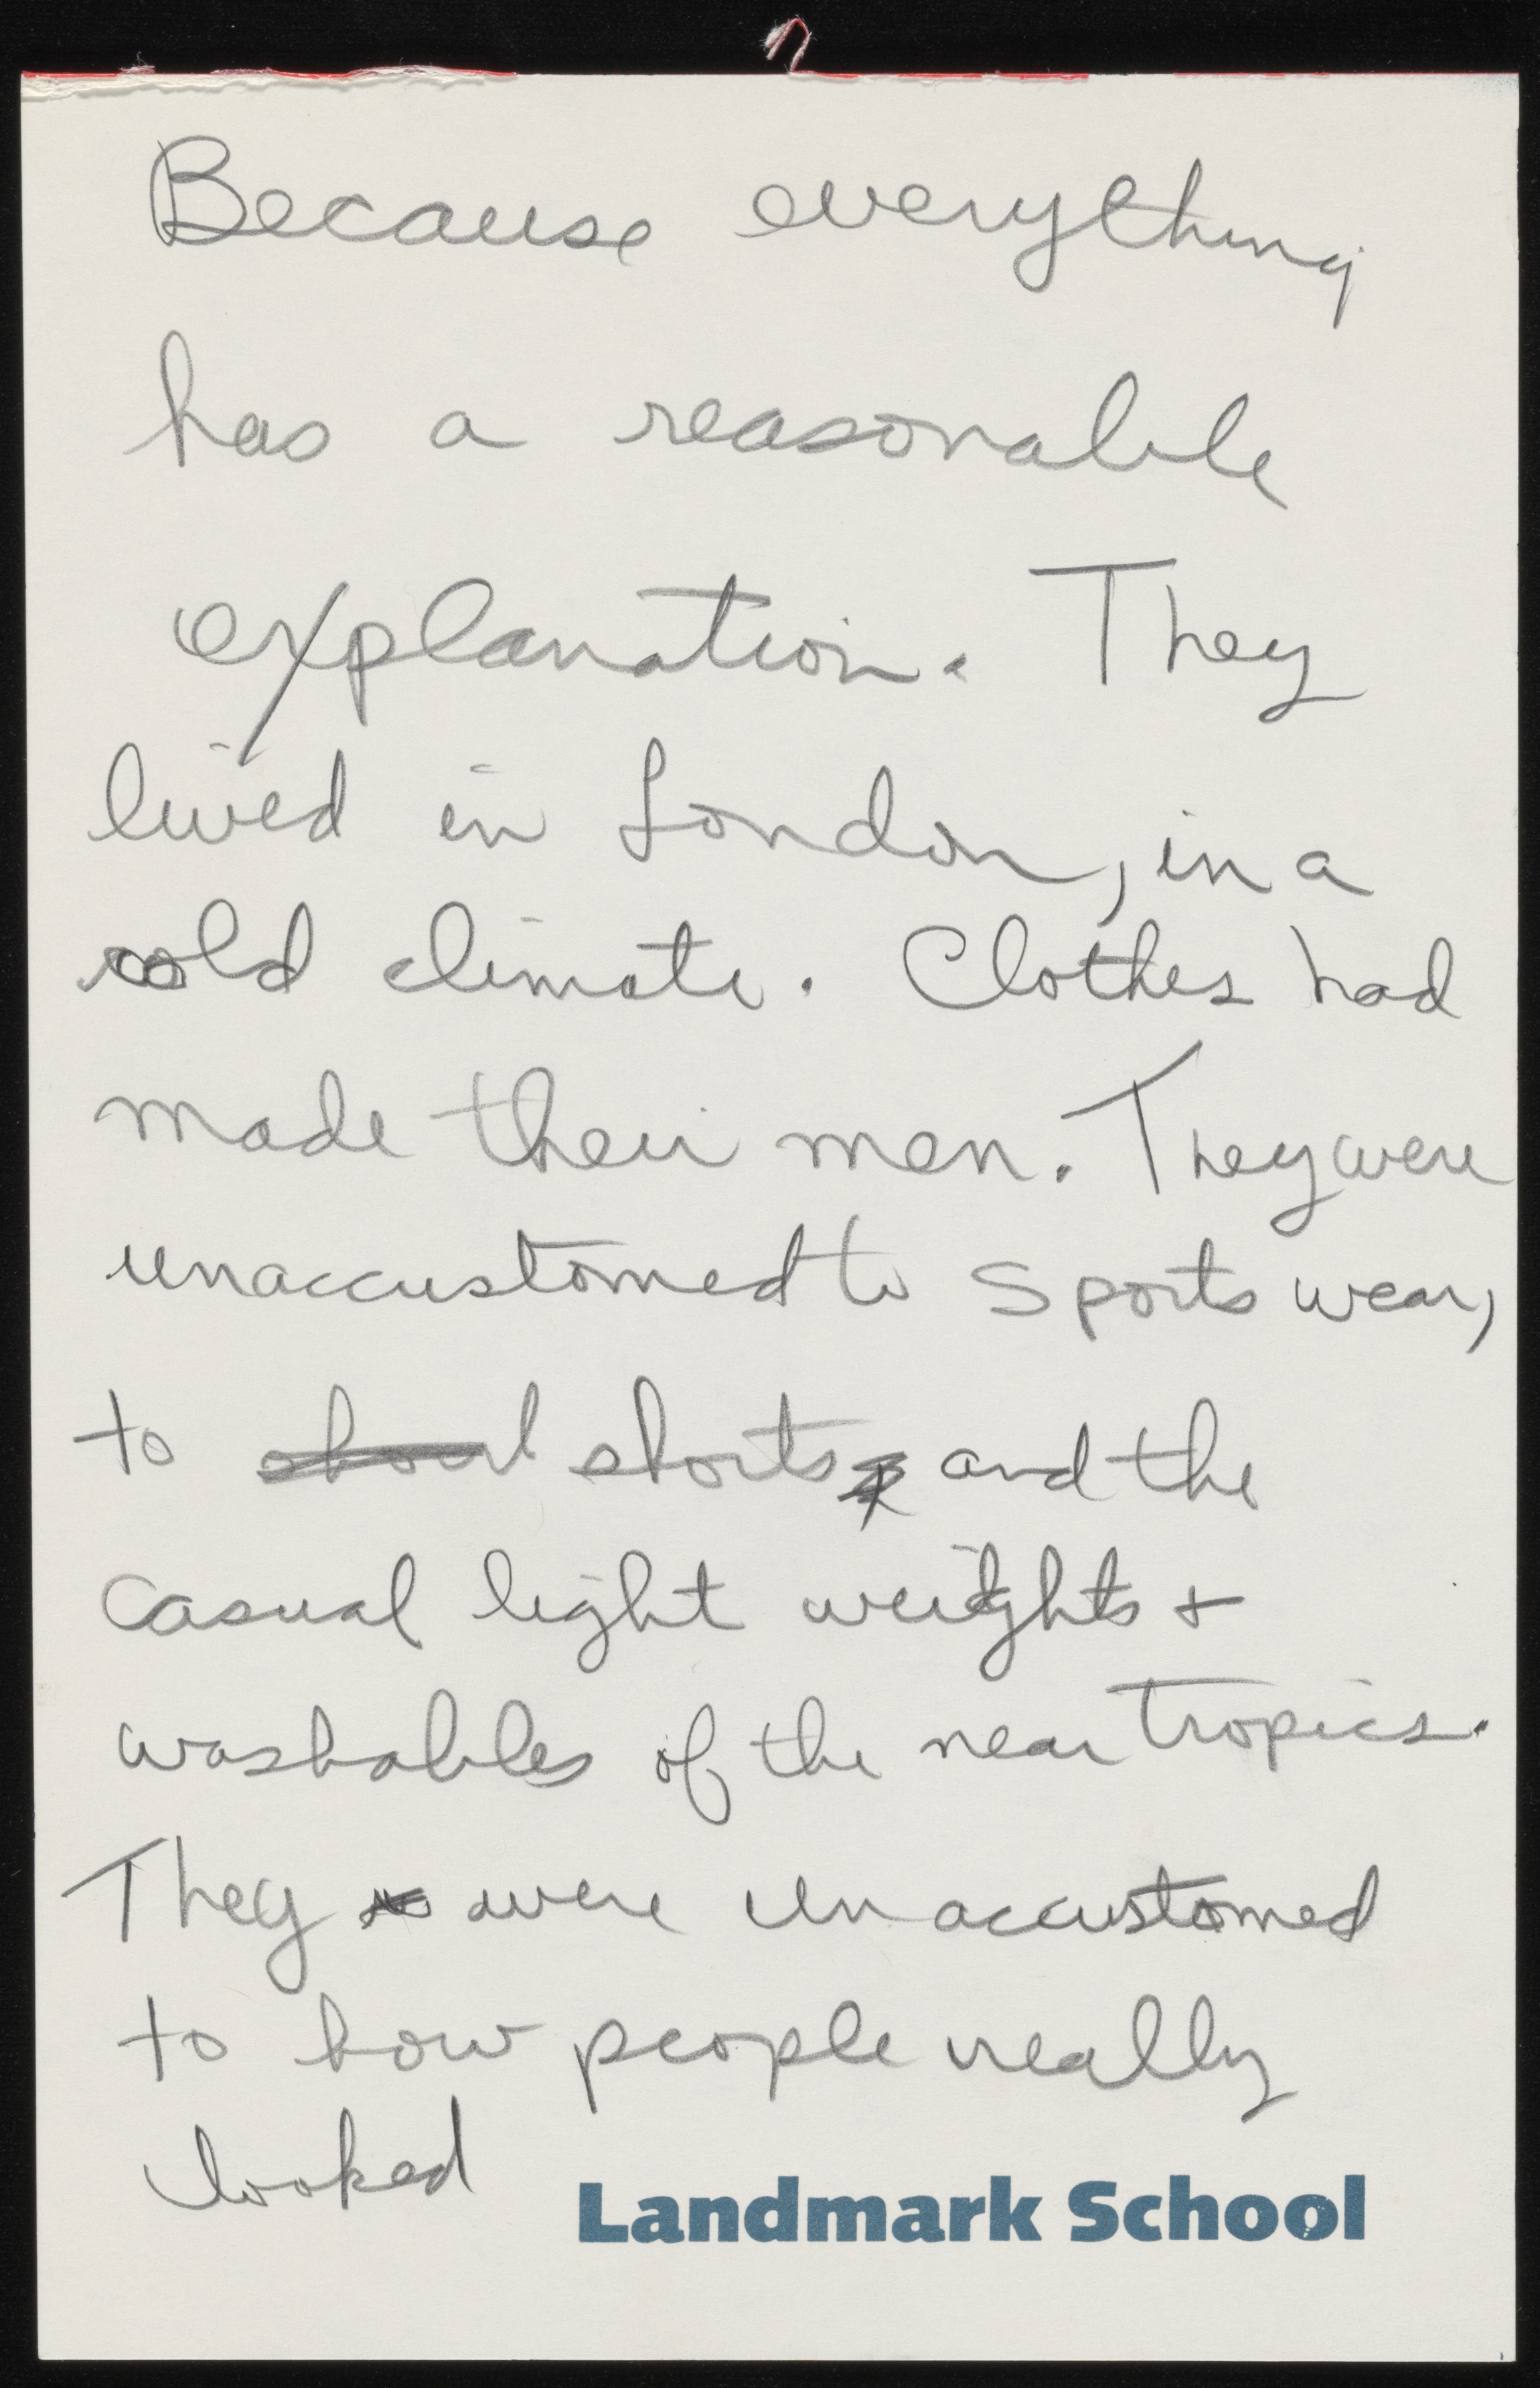 Because everything
has a reasonable
explanation. They
lived in London, in a
cold climate. Clothes had
made their men. They were
unaccustomed to sports wear,
to shorts and the
casual light weights +
washables of the near tropics.
They were unaccustomed
to how people really
looked
Landmark School